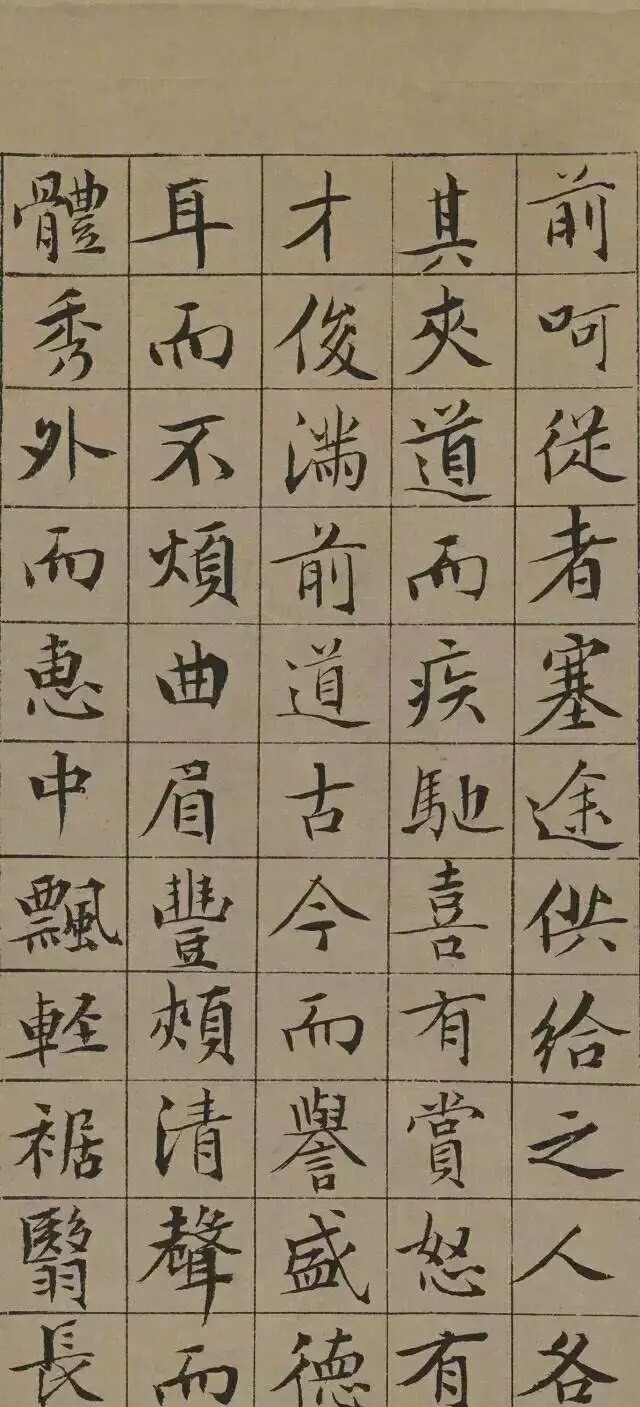 前呵從者塞途供給之人各
其夾道而疾馳喜有賞怒有
才俊滿前道古今而譽盛德
耳而不煩曲眉豐頰清聲而
體秀外而惠中飄輕裾翳長